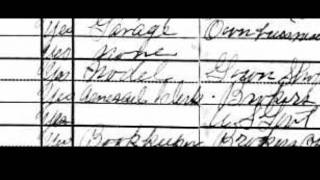 Yes Garage Own business
Yes none
Yes Model Gown Sho
Yes Clerk Brokers
Yes U S Govt
Yes Bookkeeper Brokers O